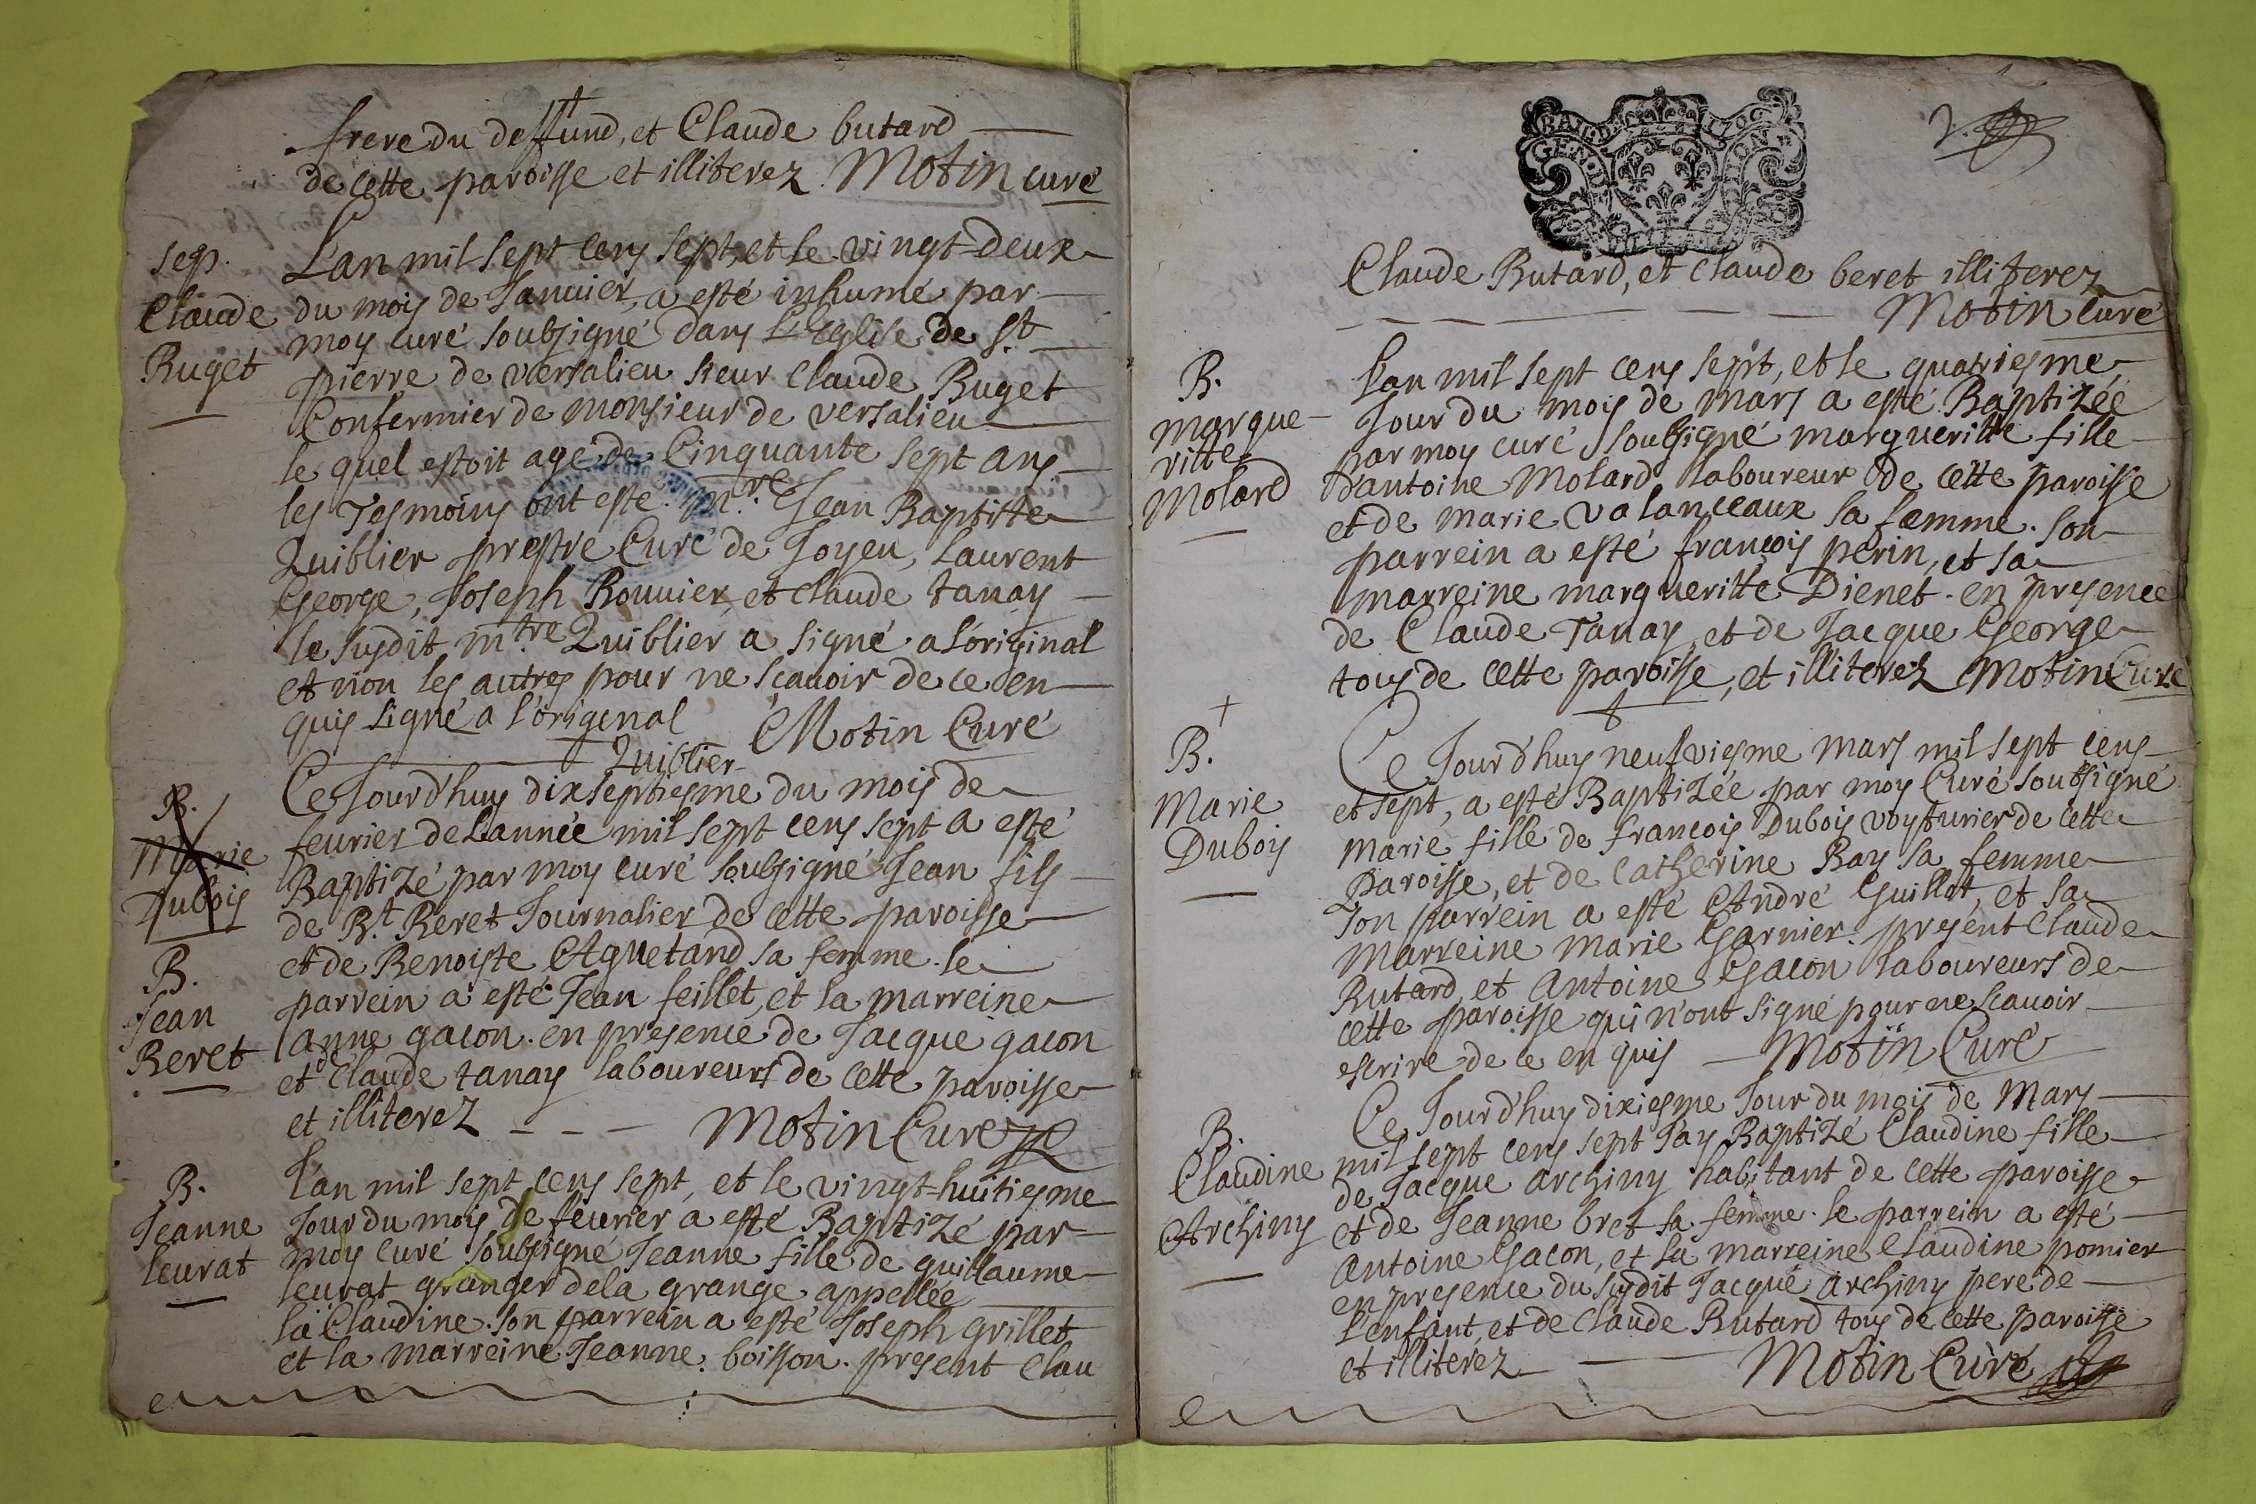 frere du deffund, et Claude butard
de cette paroisse et illiterez. Motin curé
sep.
Claude
Buget
L'an mil sept cens sept, et le vingt-deux
du mois de Januier, a esté inhumé par
moy curé soubsigné dans L'Eglise de St
pierre de versalieu sieur Claude Buget
Confermier de monsieur de versalieu
le quel estoit agé de Cinquante sept ans
les Tesmoins ont esté. m.re Jean Baptiste
Quiblier prestre Curé de Joyeu, Laurent
George, Joseph Rouuier, et Claude tanay
le susdit m.tre Quiblier a signé a l'original
et non les autres pour ne scauoir de ce en
quis signé a l'original
Quiblier
Motin Curé
B.
Marie
Dubois
B.
Jean
Beret
Ce Jourd'huy dixseptiesme du mois de
feurier de L'année mil sept cens sept a esté
Baptizé par moy curé soubsigné Jean fils
de B.t Beret Journalier de cette paroisse
et de Benoiste Aguetand sa femme. le
parrein a esté Jean feillet, et la marreine
anne gacon. en presence de Jacque gacon
et Claude tanay laboureurs de cette paroisse
et illiterez Motin Curé
B.
Jeanne
leurat
L'an mil sept cens sept, et le vingt-huitiesme
Jour du mois de feurier a esté Baptizé par
moy curé soubsigné Jeanne fille de guillaume
leurat granger de la grange appellée
la Claudine. son parrein a esté Joseph grillet
et la marreine Jeanne boisson. present Clau
2.
Claude Butard, et Claude beret illiterez
Motin Curé
B.
Margue-
ritte
Molard
L'an mil sept cens sept, et le quatriesme
Jour du mois de mars a esté Baptizée
par moy curé soubsigné margueritte fille
d'antoine Molard laboureur de cette paroisse
et de marie valanceaux sa femme. son
parrein a esté françois perin, et sa
marreine margueritte Dienet. en presence
de Claude Tanay, et de Jacque George
tous de cette paroisse, et illiterez Motin Curé
B.
Marie
Dubois
Ce Jourd'huy neufviesme mars mil sept cens
et sept, a esté Baptizée par moy Curé soubsigné
marie fille de françois Dubois voyturier de cette
Paroisse, et de Catherine Bay sa femme
son parrein a esté André Guillet, et sa
marreine marie Garnier. present Claude
Butard, et Antoine Gacon laboureurs de
cette paroisse qui n'ont signé pour ne scauoir
escrire de ce en quis Motin Curé
B.
Claudine
Archiny
Ce Jourd'huy dixiesme Jour du mois de Mars
mil sept cens sept J'ay Baptizé Claudine fille
de Jacque archiny habitant de cette paroisse
et de Jeanne bret sa femme. le parrein a esté
Antoine Gacon, et la marreine Claudine pomier
en presence du susdit Jacque archiny pere de
L'enfant, et de Claude Butard tous de cette paroisse
et illiterez Motin Curé